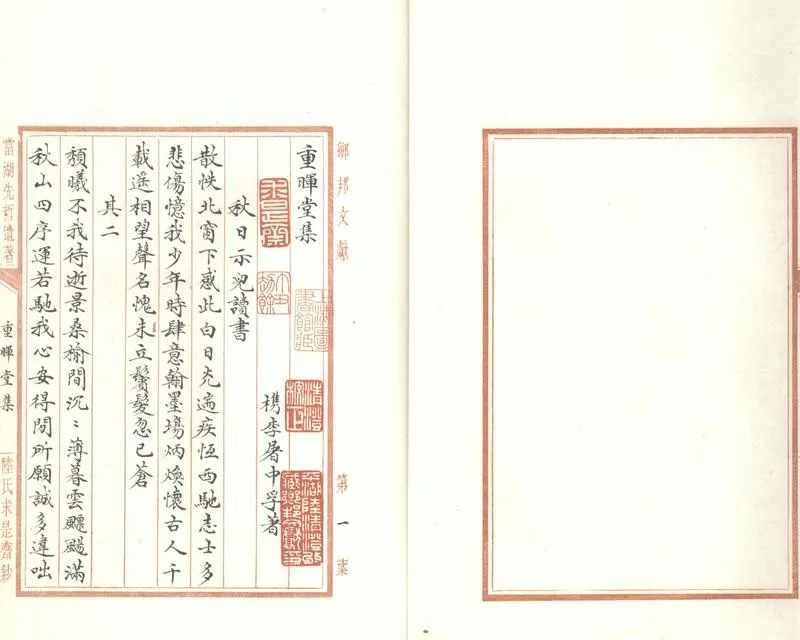 鄉邦文獻
第一葉
重暉堂集
檇李屠中孚著
秋日示兒讀書
散帙北窗下感此白日光遄疾恆西馳志士多
悲傷憶我少年時肆意翰墨場炳煥懷古人千
載遥相望聲名愧未立鬢髮忽已蒼
其二
頹曦不我待逝景桑榆間沉〻薄暮雲飂颺滿
秋山四序運若馳我心安得閒所願誠多違咄
當湖先哲遺著
重暉堂集
陸氏求是齋鈔
求是齋
上海圖書館藏
平湖陸清澄敬藏鄉邦文獻章